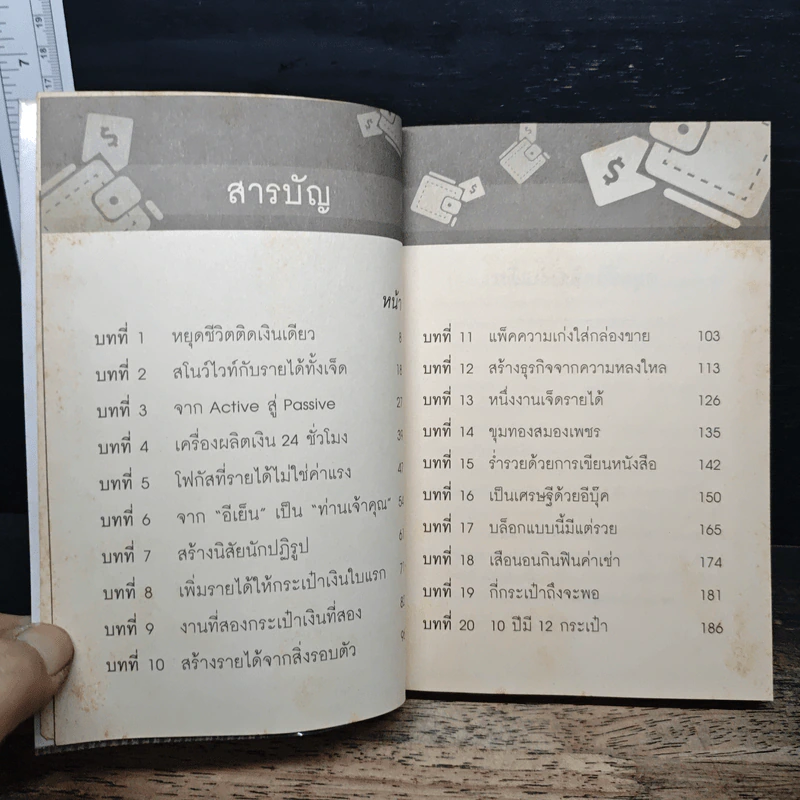 สารบัญ
หน้า
บทที่ 1 หยุดชีวิตติดเงินเดียว 8
บทที่ 2 สโนว์ไวท์กับรายได้ทั้งเจ็ด 18
บทที่ 3 จาก Active สู่ Passive 27
บทที่ 4 เครื่องผลิตเงิน 24 ชั่วโมง 39
บทที่ 5 โฟกัสที่รายได้ไม่ใช่ค่าแรง
บทที่ 6 จาก "อีเย็น" เป็น "ท่านเจ้าคุณ" 54
บทที่ 7 สร้างนิสัยนักปฏิรูป
บทที่ 8 เพิ่มรายได้ให้กระเป๋าเงินใบแรก
บทที่ 9 งานที่สองกระเป๋าเงินที่สอง
บทที่ 10 สร้างรายได้จากสิ่งรอบตัว
บทที่ 11 แพ็คความเก่งใส่กล่องขาย 103
บทที่ 12 สร้างธุรกิจจากความหลงใหล 113
บทที่ 13 หนึ่งงานเจ็ดรายได้ 126
บทที่ 14 ขุมทองสมองเพชร 135
บทที่ 15 ร่ำรวยด้วยการเขียนหนังสือ 142
บทที่ 16 เป็นเศรษฐีด้วยอีบุ๊ค 150
บทที่ 17 บล็อกแบบนี้มีแต่รวย 165
บทที่ 18 เสือนอนกินฟินค่าเช่า 174
บทที่ 19 กี่กระเป๋าถึงจะพอ 181
บทที่ 20 10 ปีมี 12 กระเป๋า 186